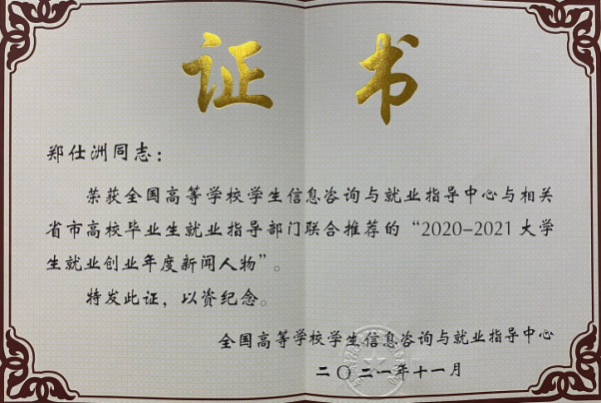 证书
郑仕洲同志：
荣获全国高等学校学生信息咨询与就业指导中心与相关
省市高校毕业生就业指导部门联合推荐的“2020-2021大学
生就业创业年度新闻人物”。
特发此证，以资纪念。
全国高等学校学生信息咨询与就业指导中心
二〇二一年十一月